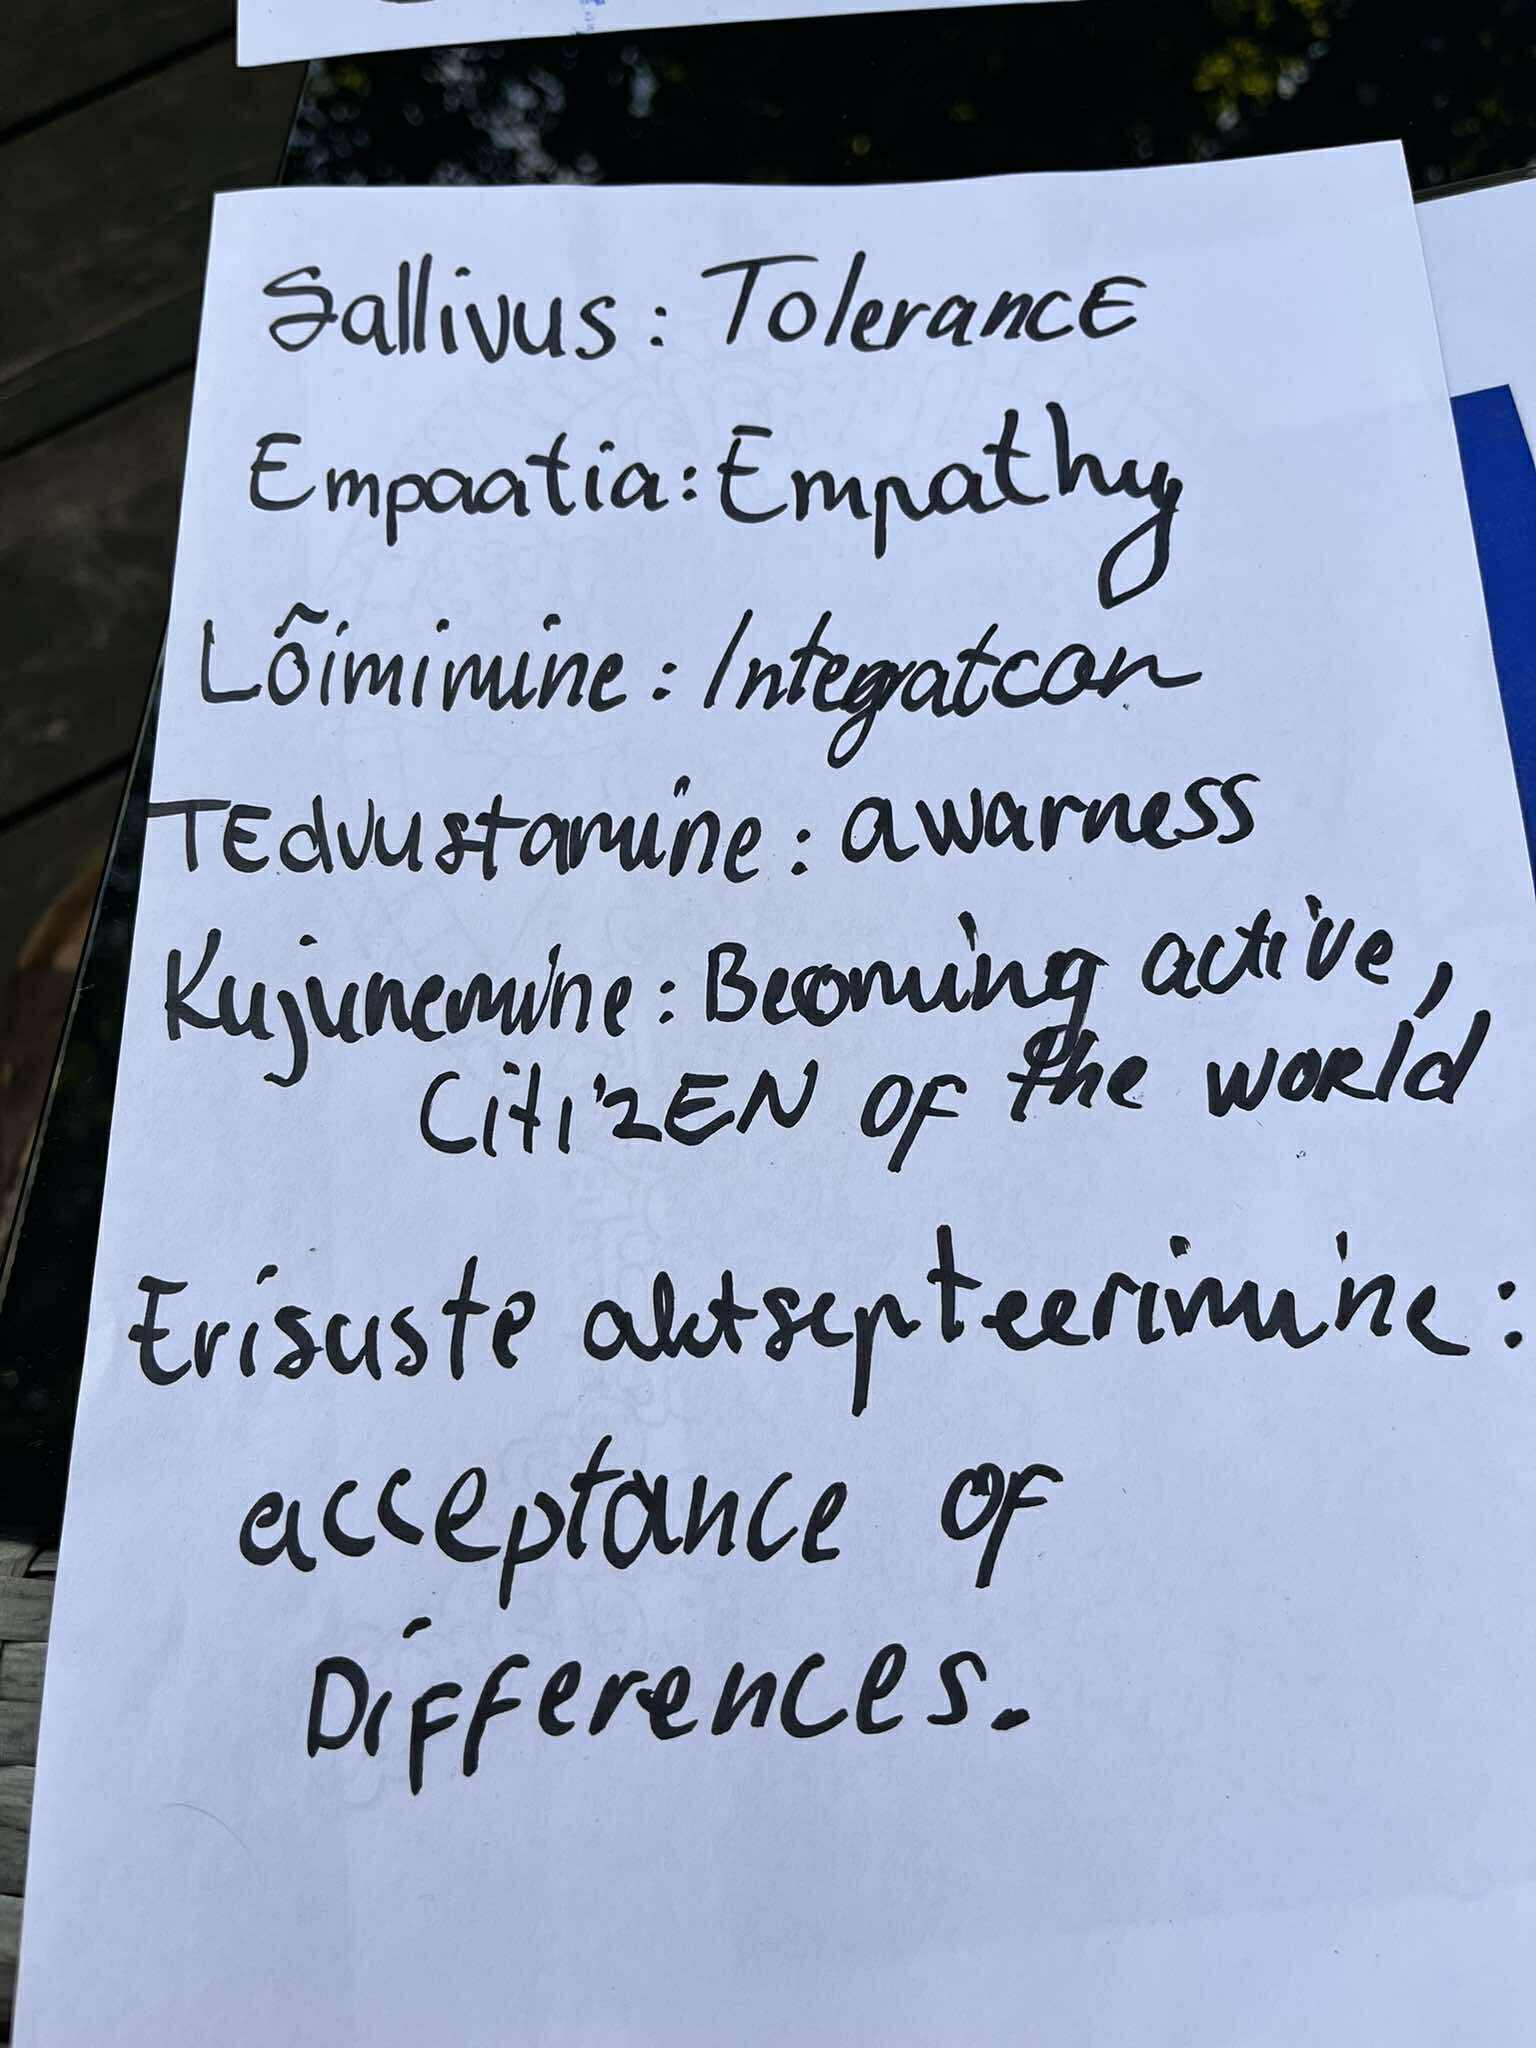 Sallivus: TolerancE
Empaatia: Empathy
Lõimimine: Integration
TEadvustamine: awarness
Kujunemine: Becoming active,
CitizEN of the world
Erisuste aktsepteerimine:
acceptance of
Differences.